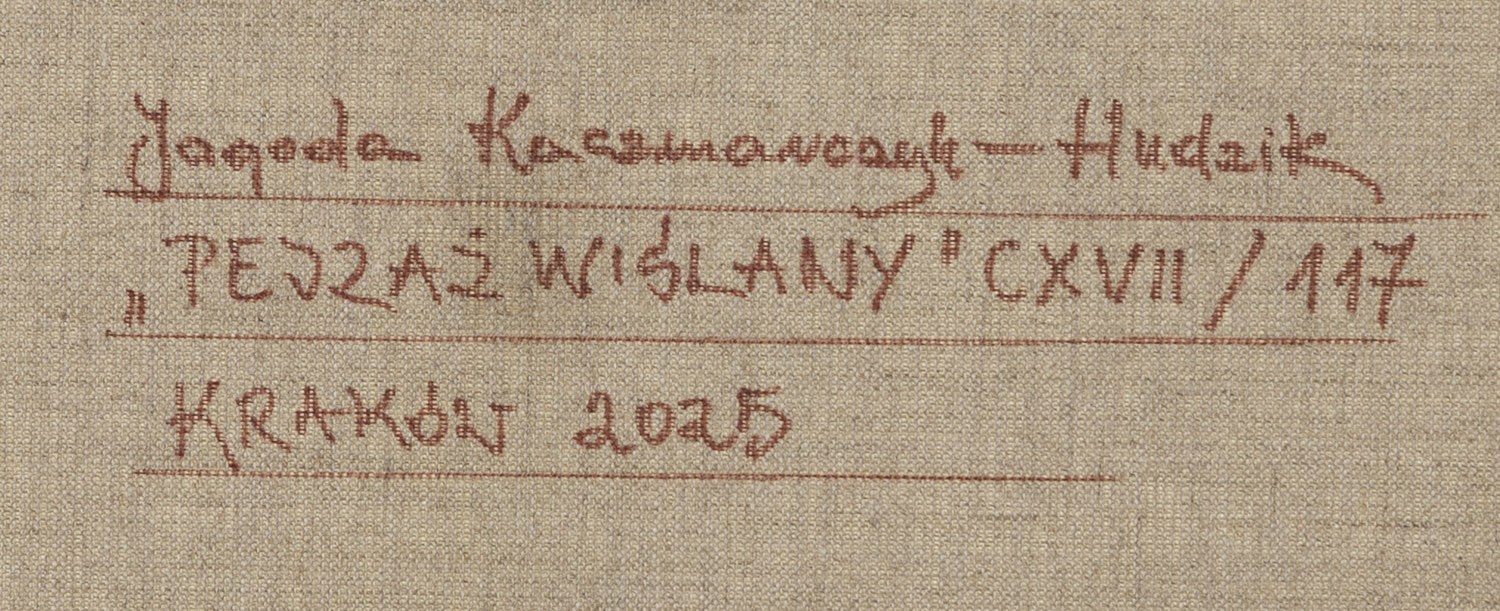 Jagoda Kaczmarczyk-Hudzik
„PEJZAŻ WIŚLANY" CXVII / 117
KRAKÓW 2025